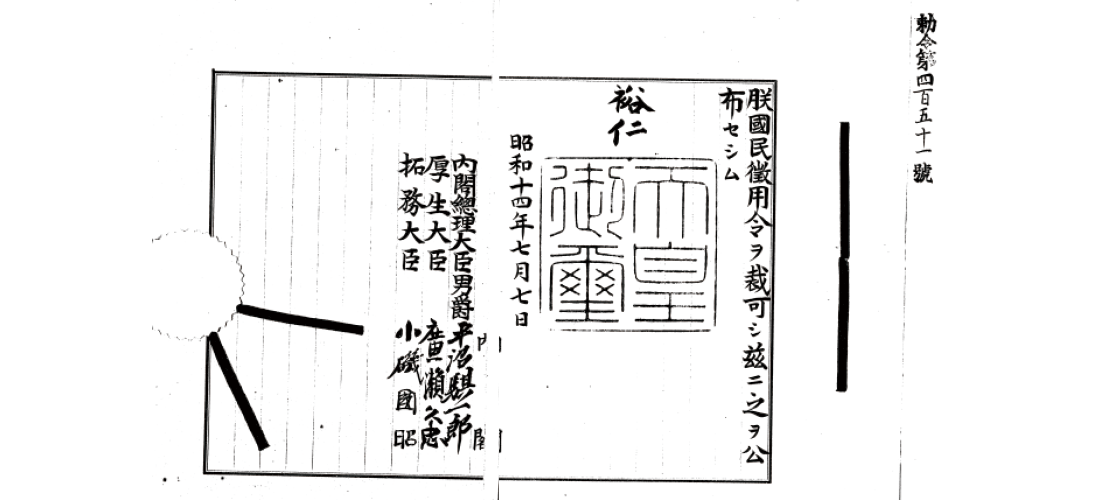 勅令第四百五十一號
朕國民徵用令ヲ裁可シ茲ニ之ヲ公
布セシム
裕仁
天皇
御璽
昭和十四年七月七日
內閣總理大臣男爵平沼騏一郎
厚生大臣廣瀨久忠
拓務大臣小磯國昭
內閣